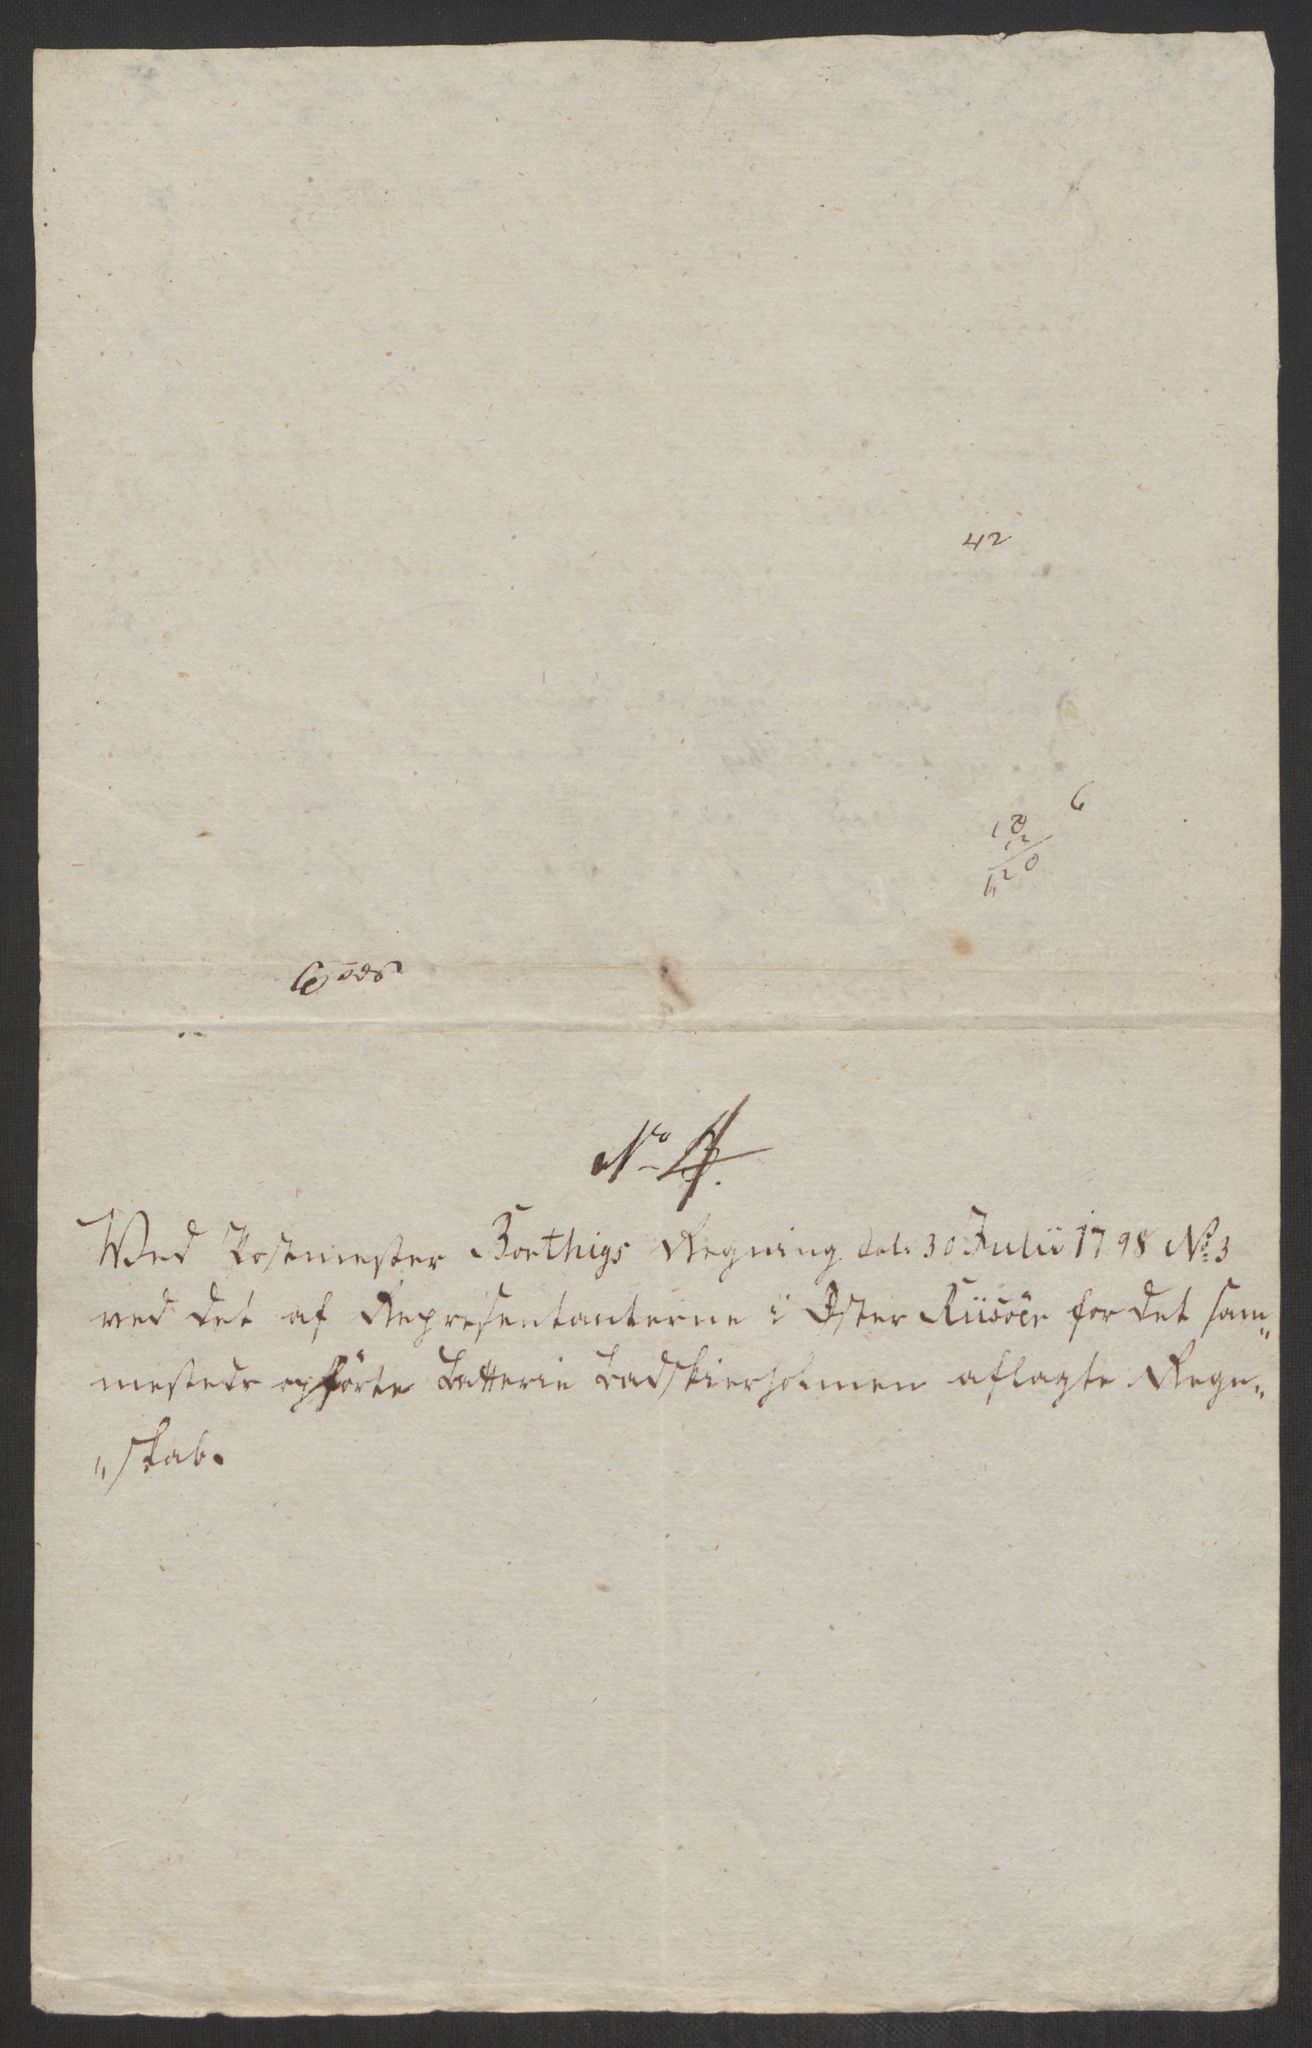 42
6
18
12
120
No 4.
Wed Postmester Boethigs Regning dat: 30 Julii 1798 No 3
ved det af Repræsentanterne i Øster Riisöer for det sam„
mesteds opförte Batterie Ladskierholmen aflagte Regn„
„skab.